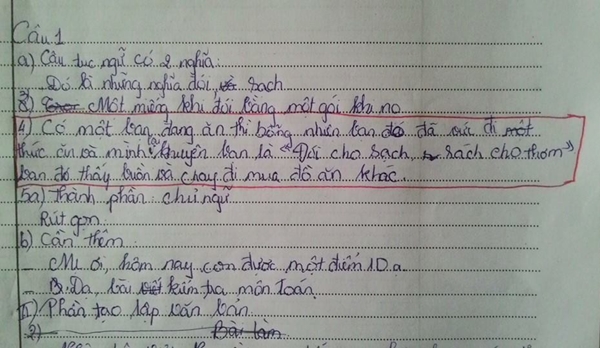 Câu 1
a) Câu tục ngữ có 2 nghĩa:
Đó là những nghĩa đói, sạch
3) Một miếng khi đói bằng một gói khi no
4) Có một bạn đang ăn thì bỗng nhiên bạn đó đã đi một
thức ăn và mình khuyên bạn là "Đói cho sạch, rách cho thơm"
bạn đó thấy buồn và chạy đi mua đồ ăn khác.
5a) Thành phần: chủ ngữ
Rút gọn
b) Cần thêm:
_ Mẹ ơi, hôm nay con được một điểm 10 ạ.
_ Dạ, bài kiểm tra môn Toán.
II) Phần tạo lập văn bản
2) Bài làm